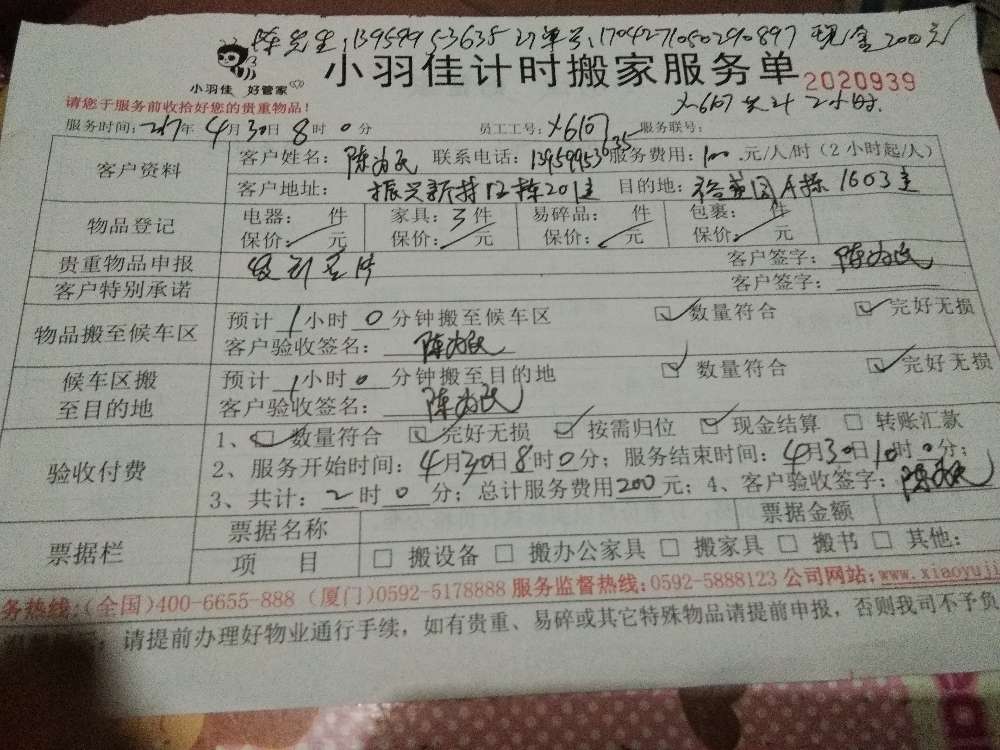 陈先生:13959953635 订单号:1704271050290897 现金200元
小羽佳 好管家
小羽佳计时搬家服务单 2020939
请您于服务前收拾好您的贵重物品!
X6107共计2小时.
服务时间:2017年4月30日8时0分 员工工号:X6107 服务联号:
客户资料
客户姓名:陈为民 联系电话:13959953635 服务费用:100.元/人/时(2小时起/人)
客户地址:振兴新村12栋201室 目的地: A栋1603室
物品登记
电器: 件 家具:3件 易碎品: 件 包裹: 件
保价: 元 保价: 元 保价: 元 保价: 元
贵重物品申报 客户签字:陈为民
客户特别承诺 客户签字:
物品搬至候车区
预计1小时0分钟搬至候车区 数量符合 完好无损
客户验收签名:陈为民
候车区搬至目的地
预计1小时0分钟搬至目的地 数量符合 完好无损
客户验收签名:陈为民
验收付费
1、数量符合 完好无损 按需归位 现金结算 转账汇款
2、服务开始时间:4月30日8时0分;服务结束时间:4月30日10时0分;
3、共计:2时0分;总计服务费用200元;4、客户验收签字:陈为民
票据栏
票据名称 票据金额
项目 搬设备 搬办公家具 搬家具 搬书 其他:
务热线:(全国)400-6655-888 (厦门)0592-5178888 服务监督热线:0592-5888123 公司网站:www.xiaoyuji
请提前办理好物业通行手续,如有贵重、易碎或其它特殊物品请提前申报,否则我司不予负